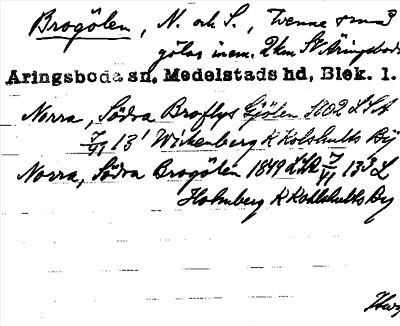 Brogölen, N. och S., Tvenne små
gölar inom 2 km SV Åringsboda
Aringsboda sn, Medelstads hd, Blek. l.
Norra, Södra Broflys Gjölen 1802 LSA
7/VI 13¹ Wickenberg K Kolshults By
Norra, Södra Brogölen 1849 LSA 7/VI 13³ L
Holmberg K Kohlshults By